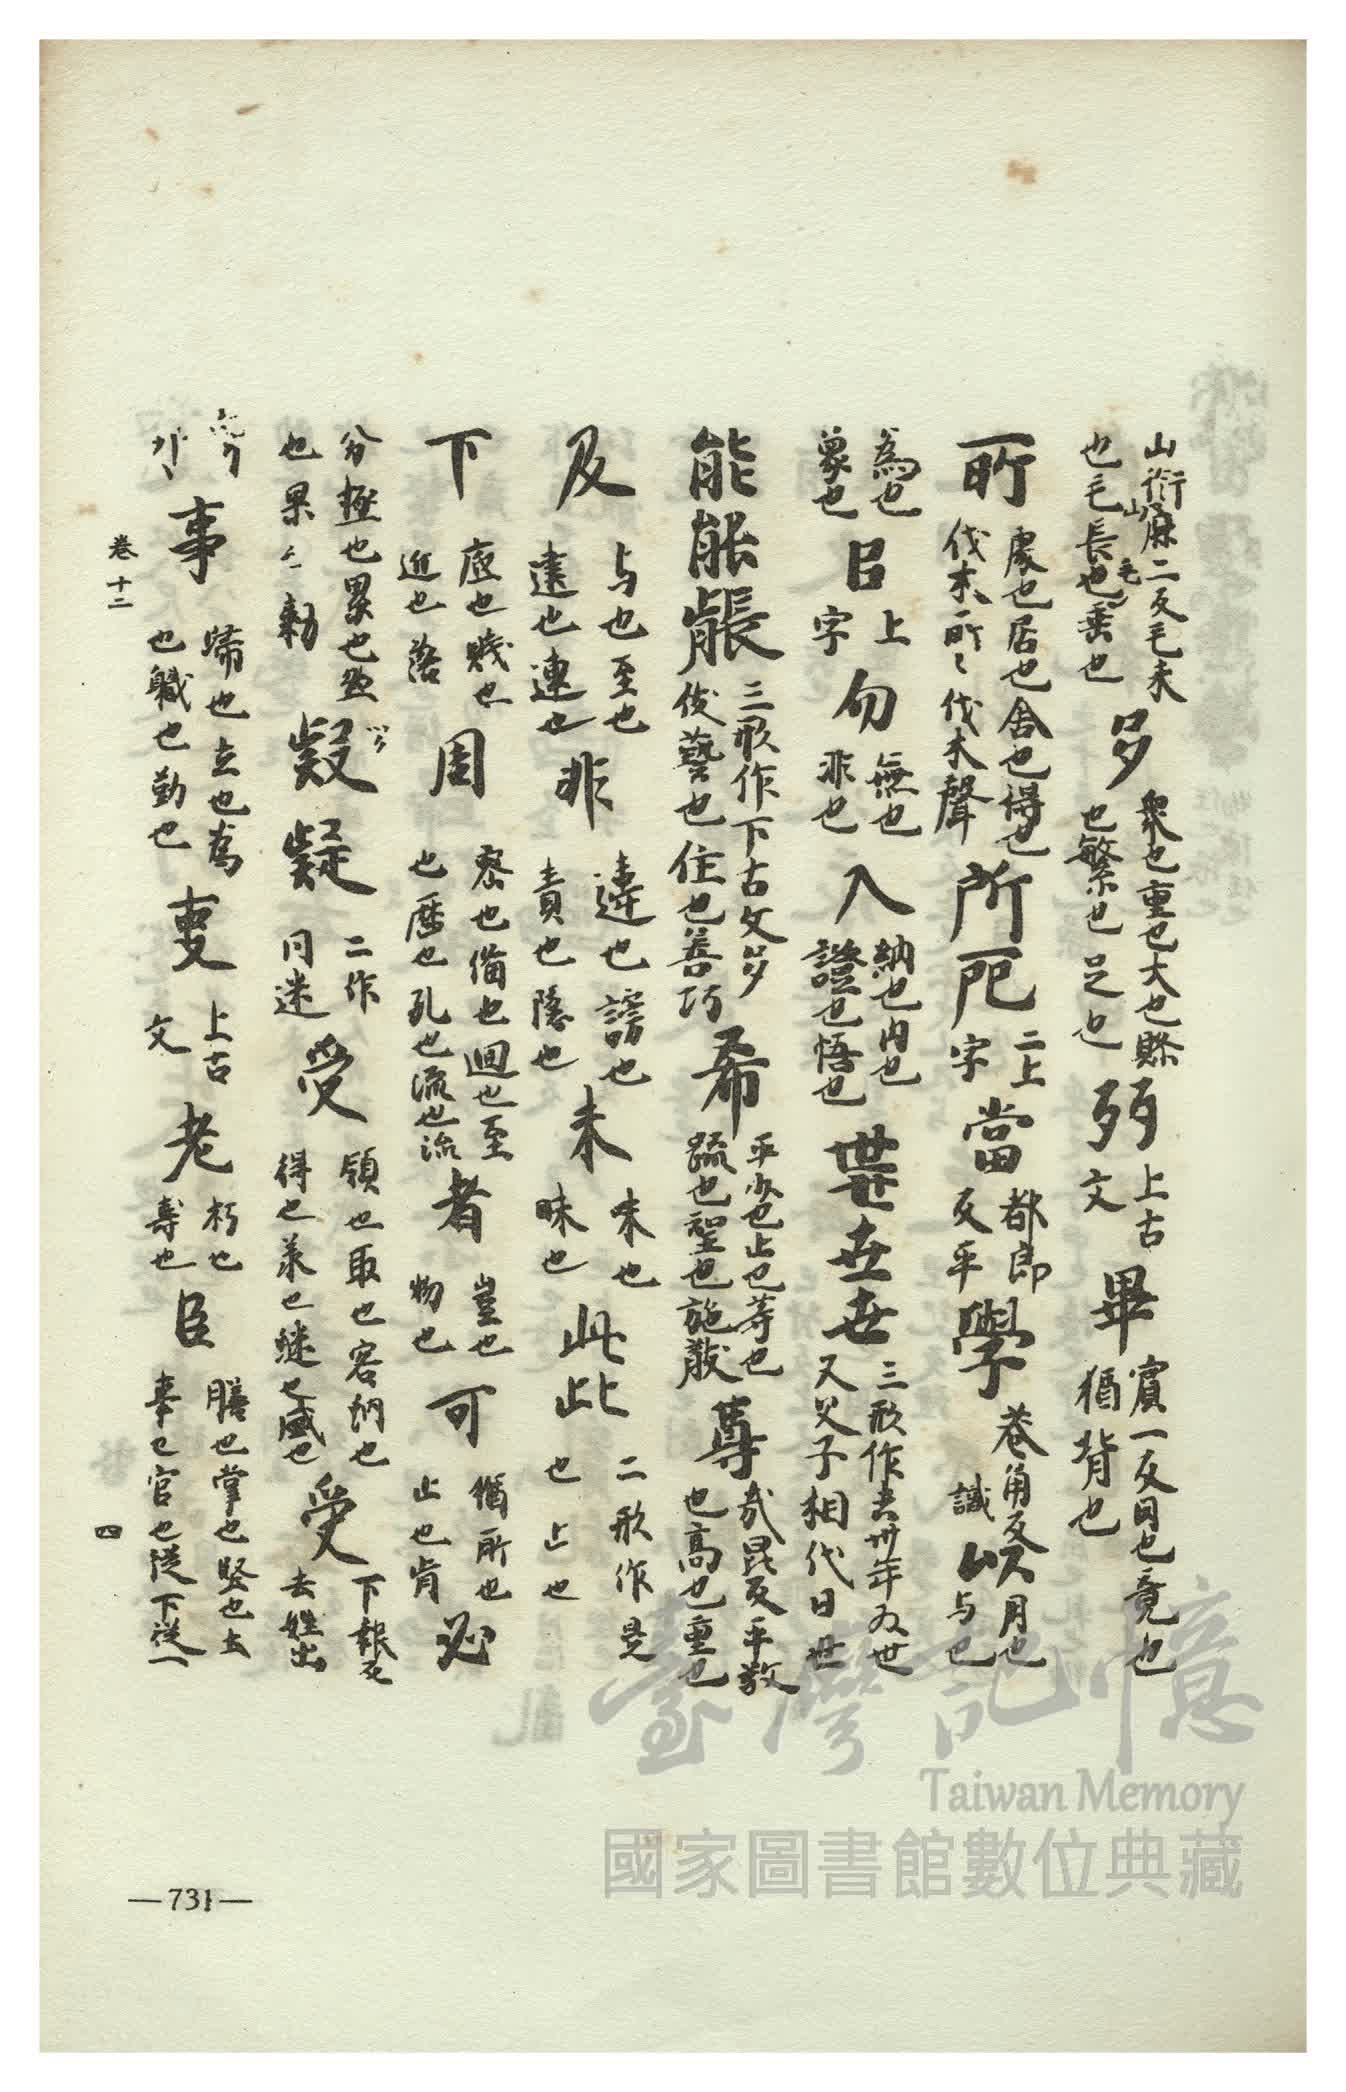 山衘麻二反毛未
也毛長也垂也
多
衆也重也大也賒
也繁也足也
弜
上古
文
畢
賓一反同也竟也
猶背也
所
處也居也舍也得也
伐木所〻伐木聲
所
二上
字
當
都郎
反平
學
巷角反
識
以
月也
与也
為也
象也
㠯
上
字
勿
無也
非也
入
納也内也
證也悟也
世世
三形作去卅年為世
又父子相代曰世
能能
三形作下古文
伎藝也住也善巧
希
平少也止也等也
疏也望也施散
尊
昆反平敬
也高也重也
及
与也至也
逮也連也
非
違也謗也
責也隱也
未
未也
昧也
此此
二形作是
也止也
下
底也賤也
近也落
周
密也備也迴也至
也歷也孔也流也
者
豈也
物也
可
猶所也
止也肯
必
分極也累也
也果〻勅
疑
二作
同迷
受
領也取也容納也
得也承也継也盛也
受
下報反
去姓出
事
歸也立也為
也職也勤也
叓
上古
文
老
朽也
壽也
臣
膳也掌也堅也
奉也官也從下從一
卷十二
四
—731—
臺灣記憶
Taiwan Memory
國家圖書館數位典藏